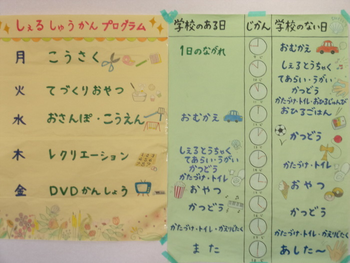 しぇるしゅうかんプログラム
月 こうさく
火 てづくりおやつ
水 おさんぽ・こうえん
木 レクリエーション
金 DVDかんしょう
学校のある日
じかん
学校のない日
1日のながれ
おむかえ
しぇるとうちゃく
てあらい・うがい
かつどう
かたづけ・トイレ
おやつ
かつどう
かたづけ・トイレ・かえりじたく
また
おむかえ
しぇるとうちゃく
てあらい・うがい
かつどう
かたづけ・トイレ・おひるじゅんび
おひるごはん
かつどう
かたづけ・トイレ
おやつ
かつどう
かたづけ・トイレ・かえりじたく
あした〜